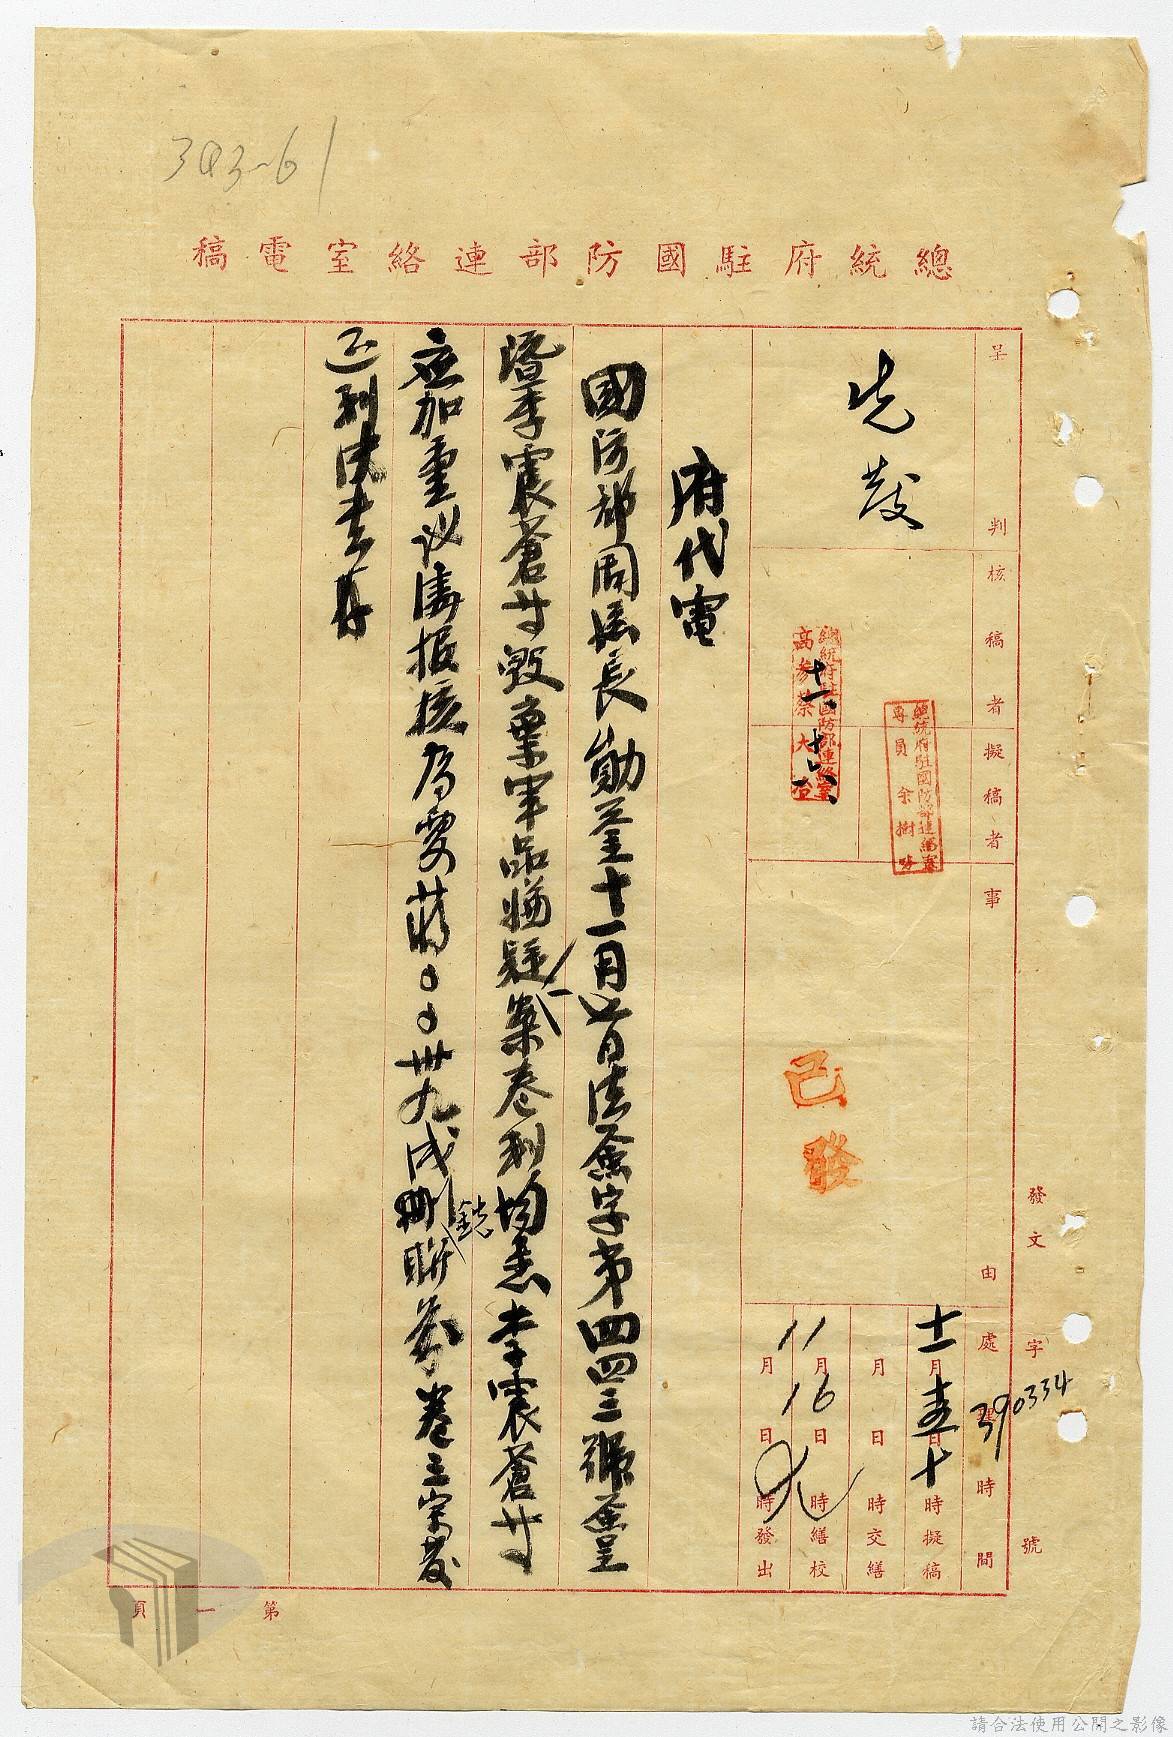 393-61
總統府駐國防部連絡室電稿
呈判
先發
核稿者
總統府駐國防部連絡室
高參蔡大
十一、十六、
擬稿者
總統府駐國防部連絡室
專員余樹
事由
已發
發文字號
390334
處理時間
十一月 日十時擬稿
月日時交繕
11月16日時繕校
月日時發出
府代電
國防部周總長勛鑒十一月 日法簽字第四四三號簽呈
暨李震蒼等毀棄軍品嫌疑一案卷判均悉李震蒼等
應加重議處報核為要蔣○○卅九戌 聯 卷三宗發
還判決書存
第一頁
請合法使用公開之影像